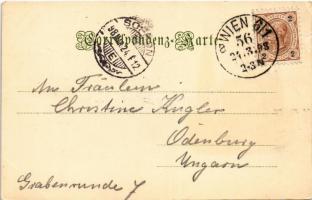 Correspondenz-Karte
SOPRON
98
WIEN 9/1
56
24.3.98
2-3N
An Fräulein
Christine Kugler
Ödenburg
Ungarn
Grabenrunde 7